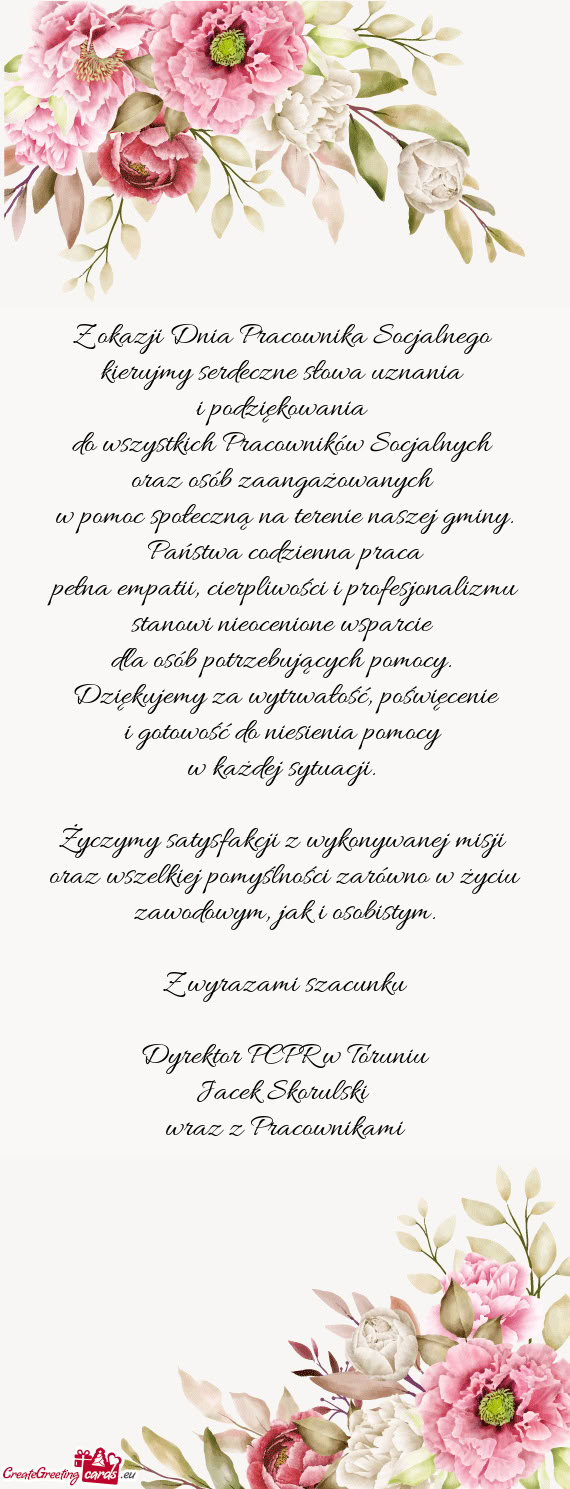 Z okazji Dnia Pracownika Socjalnego
kierujmy serdeczne słowa uznania
i podziękowania
do wszystkich Pracowników Socjalnych
oraz osób zaangażowanych
w pomoc społeczną na terenie naszej gminy.
Państwa codzienna praca
pełna empatii, cierpliwości i profesjonalizmu
stanowi nieocenione wsparcie
dla osób potrzebujących pomocy.
Dziękujemy za wytrwałość, poświęcenie
i gotowość do niesienia pomocy
w każdej sytuacji.
Życzymy satysfakcji z wykonywanej misji
oraz wszelkiej pomyślności zarówno w życiu
zawodowym, jak i osobistym.
Z wyrazami szacunku
Dyrektor PCPR w Toruniu
Jacek Skorulski
wraz z Pracownikami
CreateGreeting cards .eu